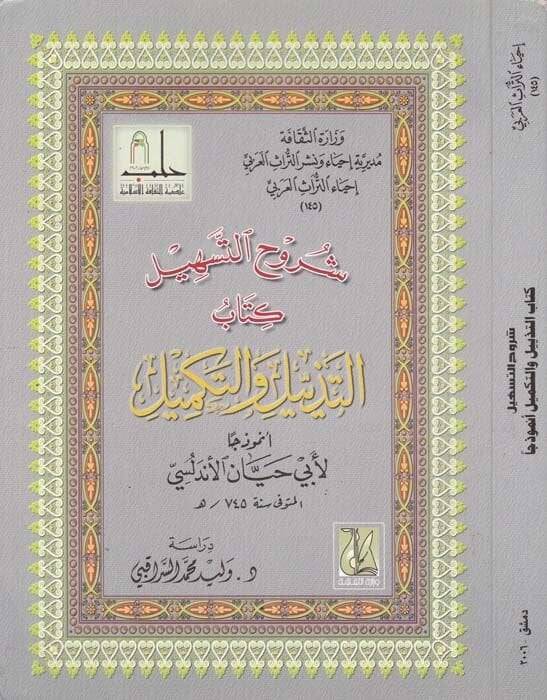 وزارة الثقافة
مديرية إحياء ونشر التراث العربي
إحياء التراث العربي
(١٤٥)
حلب
عاصمة الثقافة الإسلامية
شروح التسهيل
كتاب
التذييل والتكميل
أنموذجًا
لأبي حيان الأندلسي
المتوفى سنة ٧٤٥ / هـ
دراسة
د. وليد محمد السراقبي
إحياء التراث العربي
(١٤٥)
شروح التسهيل
كتاب التذييل والتكميل أنموذجاً
دمشق - ٢٠٠٦